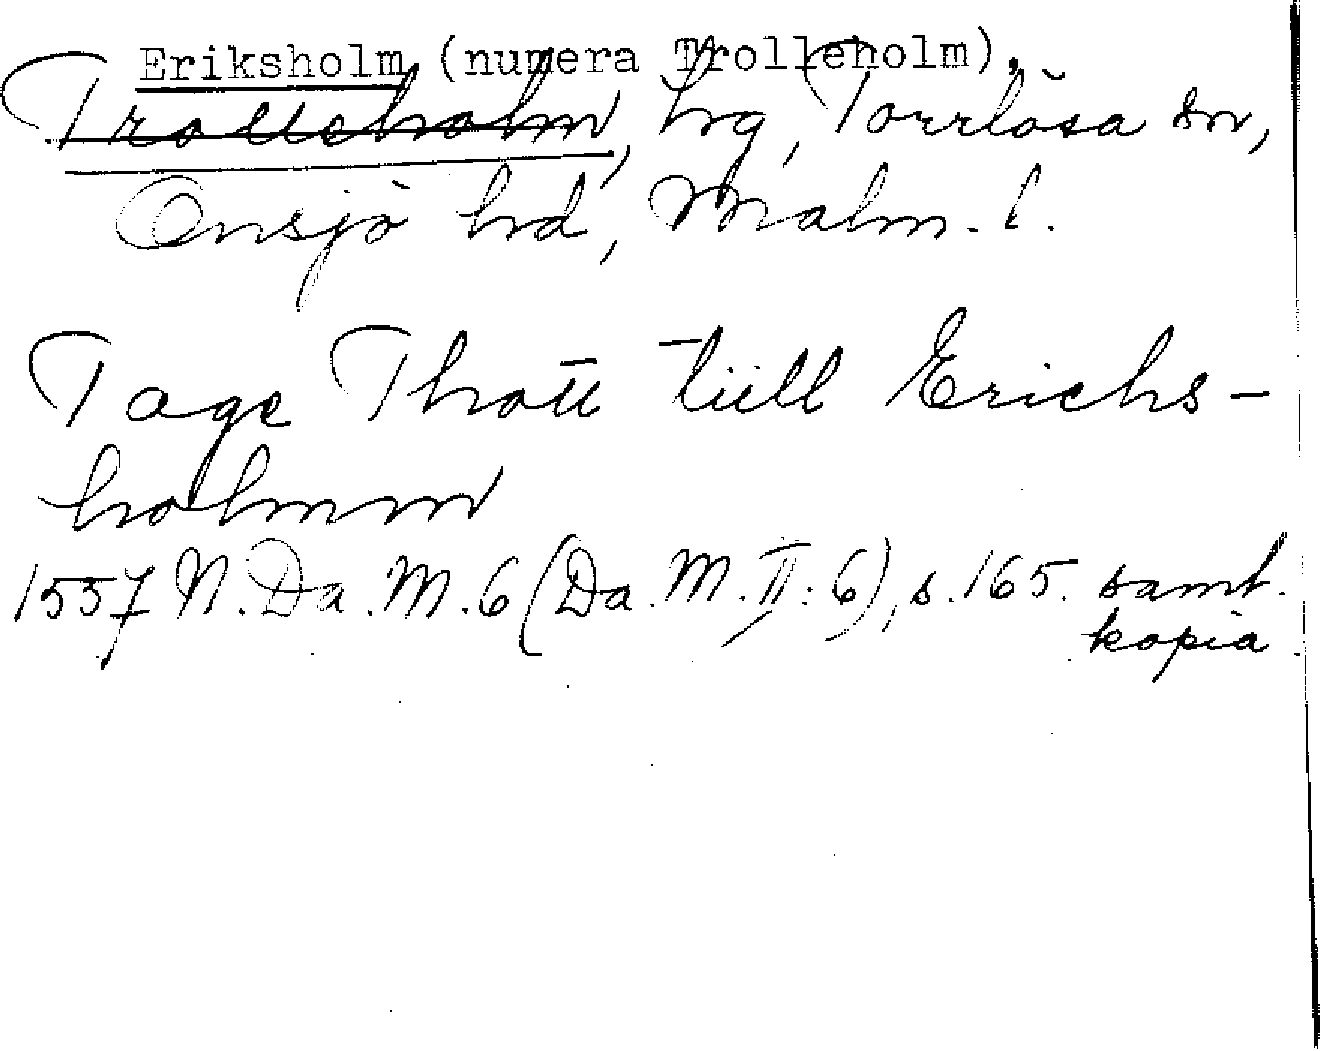 Eriksholm (numera Trolleholm).
Trolleholm, hg, Torrlösa sn,
Onsjö hd, Malm. l.
Tage Thott tiill Erichs-
holmm
1557 N. Da. M. 6 (Da. M. II: 6), s. 165. samt.
kopia